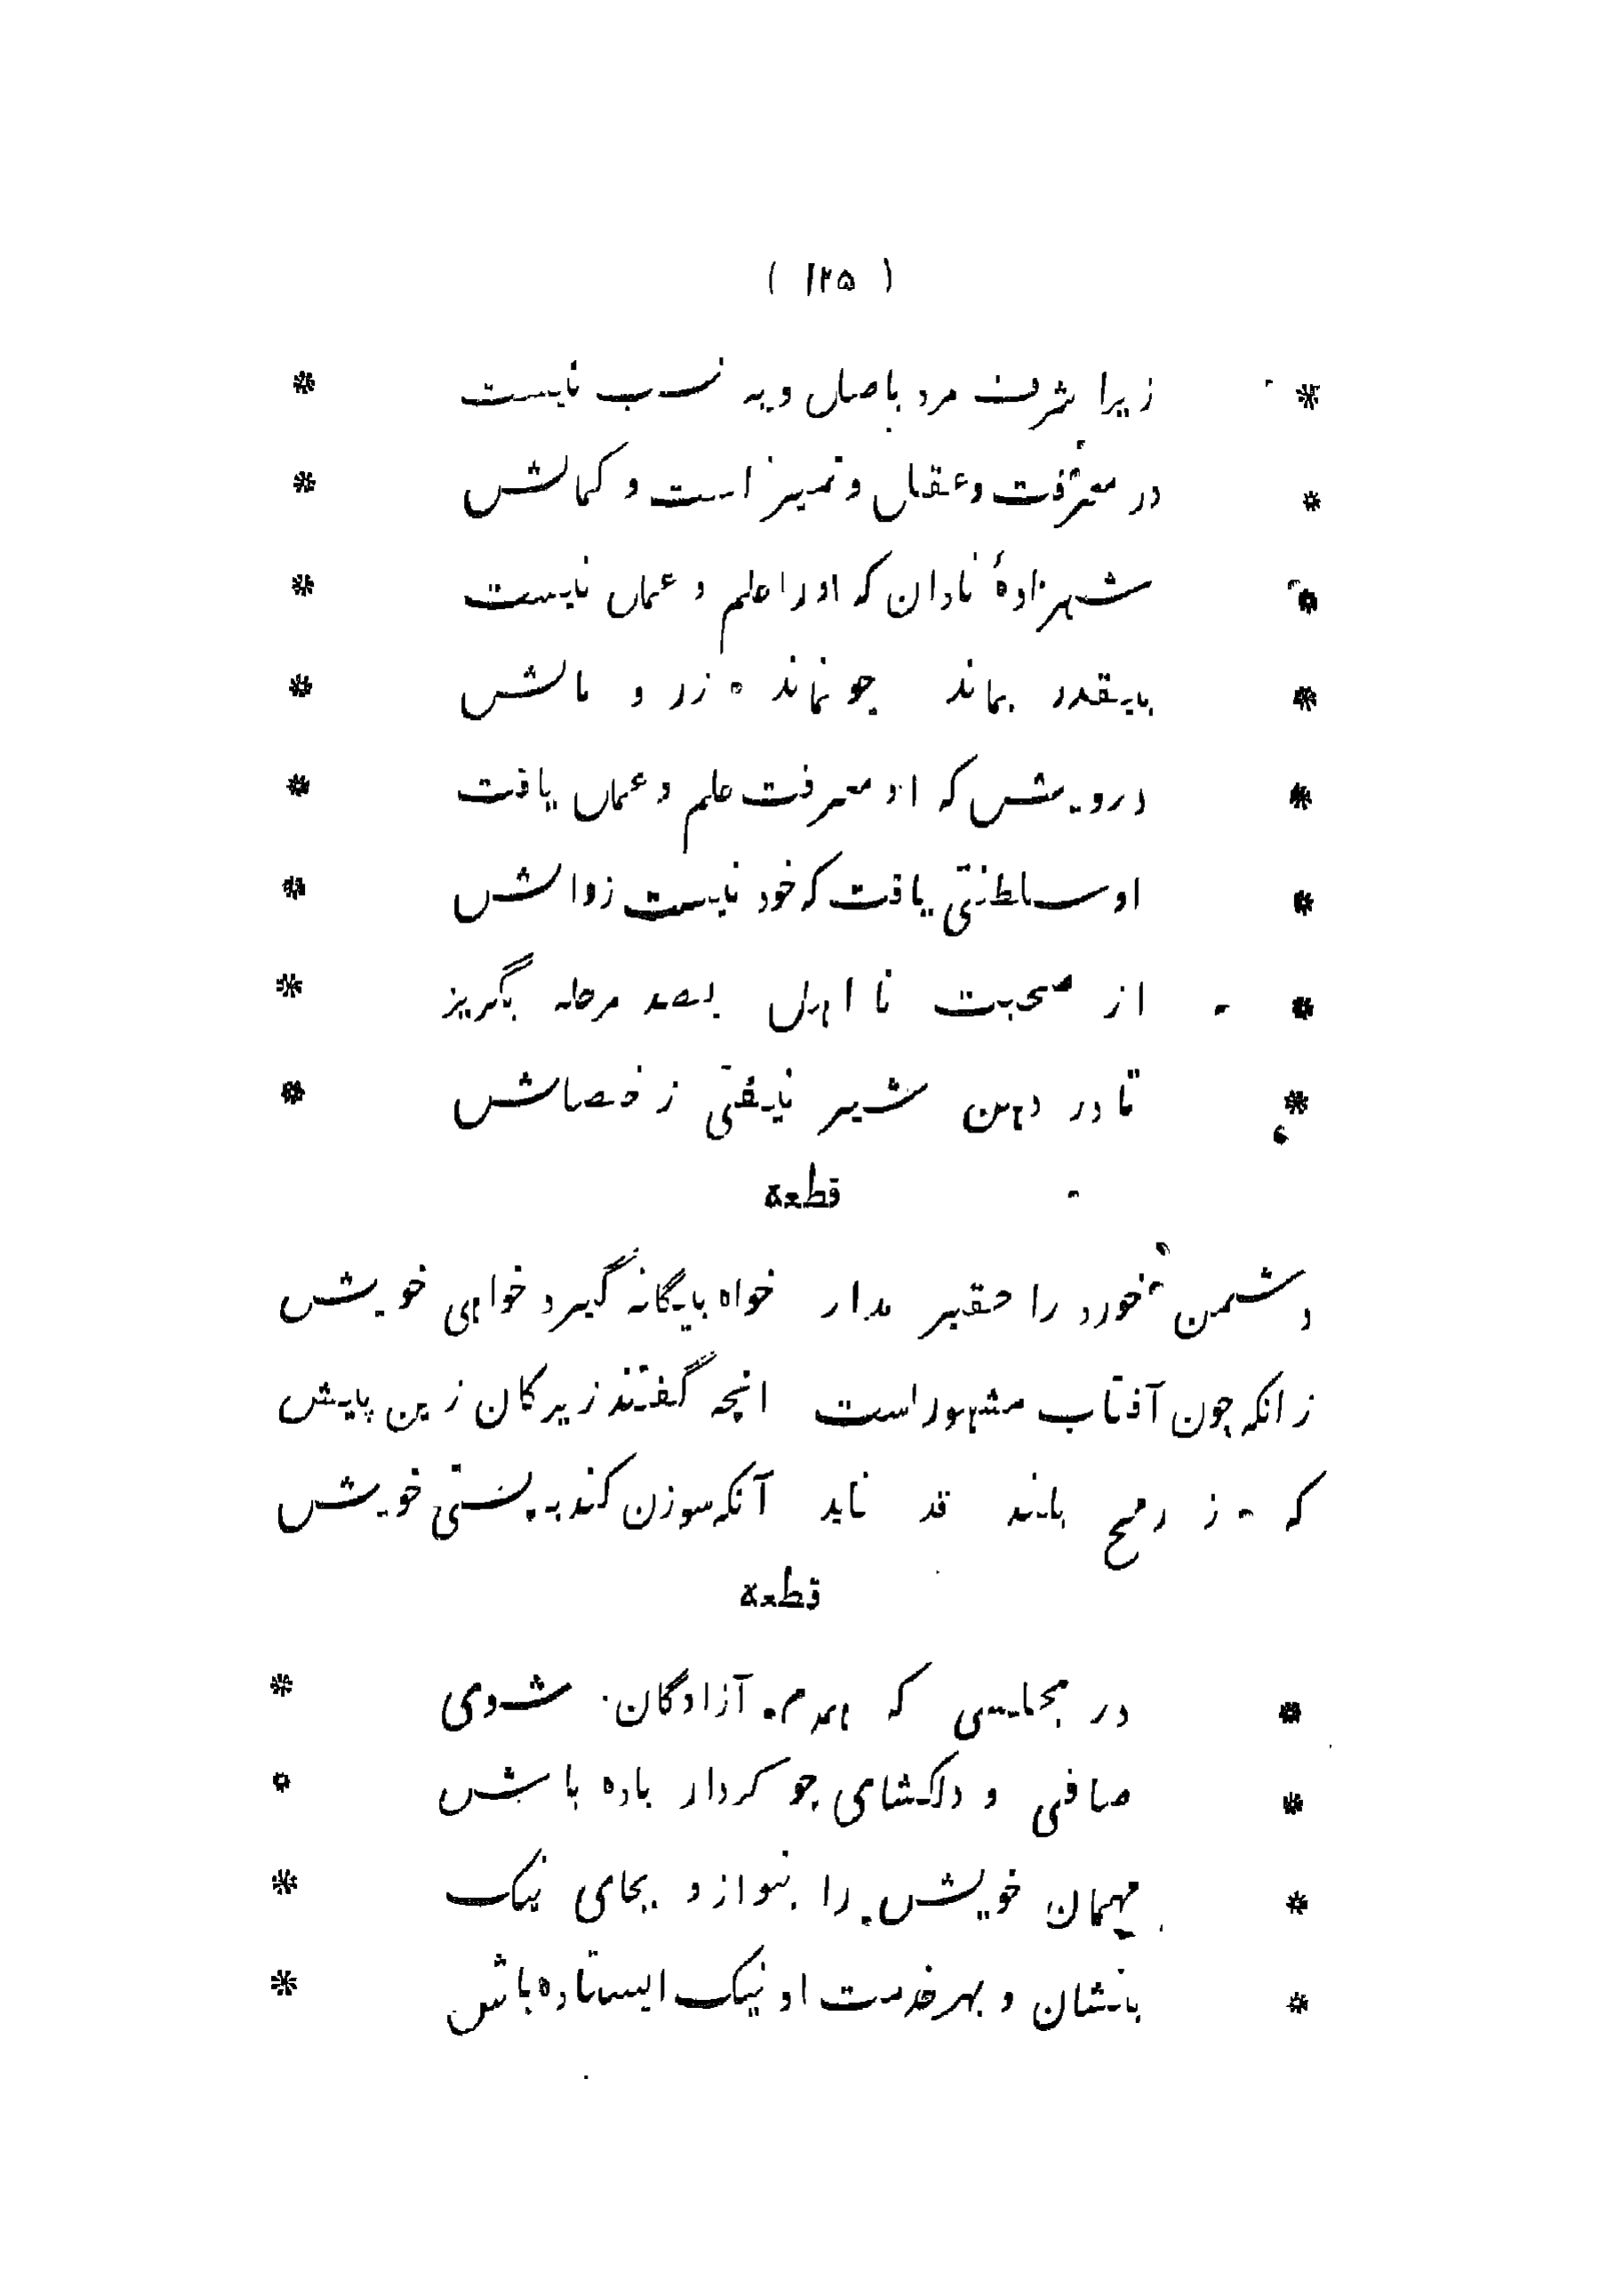 ( ۱۲۵ )
* زیرا شرف مرد باصل و به نسب نیست *
* در معرفت و عقل و تمیز است و کمالش *
* شهزادهٔ نادان که اورا علم و عمل نیست *
* بیقدر بماند چو نماند زر و مالش *
* درویش که او معرفت علم و عمل یافت *
* او سلطنتی یافت که خود نیست زوالش *
* از صحبت نا اهل بصد مرحله بگریز *
* تا در دهن شیر نیفتی ز خصالش *
قطعه
دشمن خورد را حقیر مدار خواه بیگانه گیر و خواهی خویش
زانکه چون آفتاب مشهور است انچه گفتند زیرکان زین پیش
که ز رمح بلند قد ناید آنکه سوزن کند به پستی خویش
قطعه
* در مجلسی که همدم آزادگان شوی *
* صافی و دلکشای چو کردار باده باش *
* مهمان خویش را بنواز و بجای نیک *
* بنشان و بهر خدمت او نیک ایستاده باش *